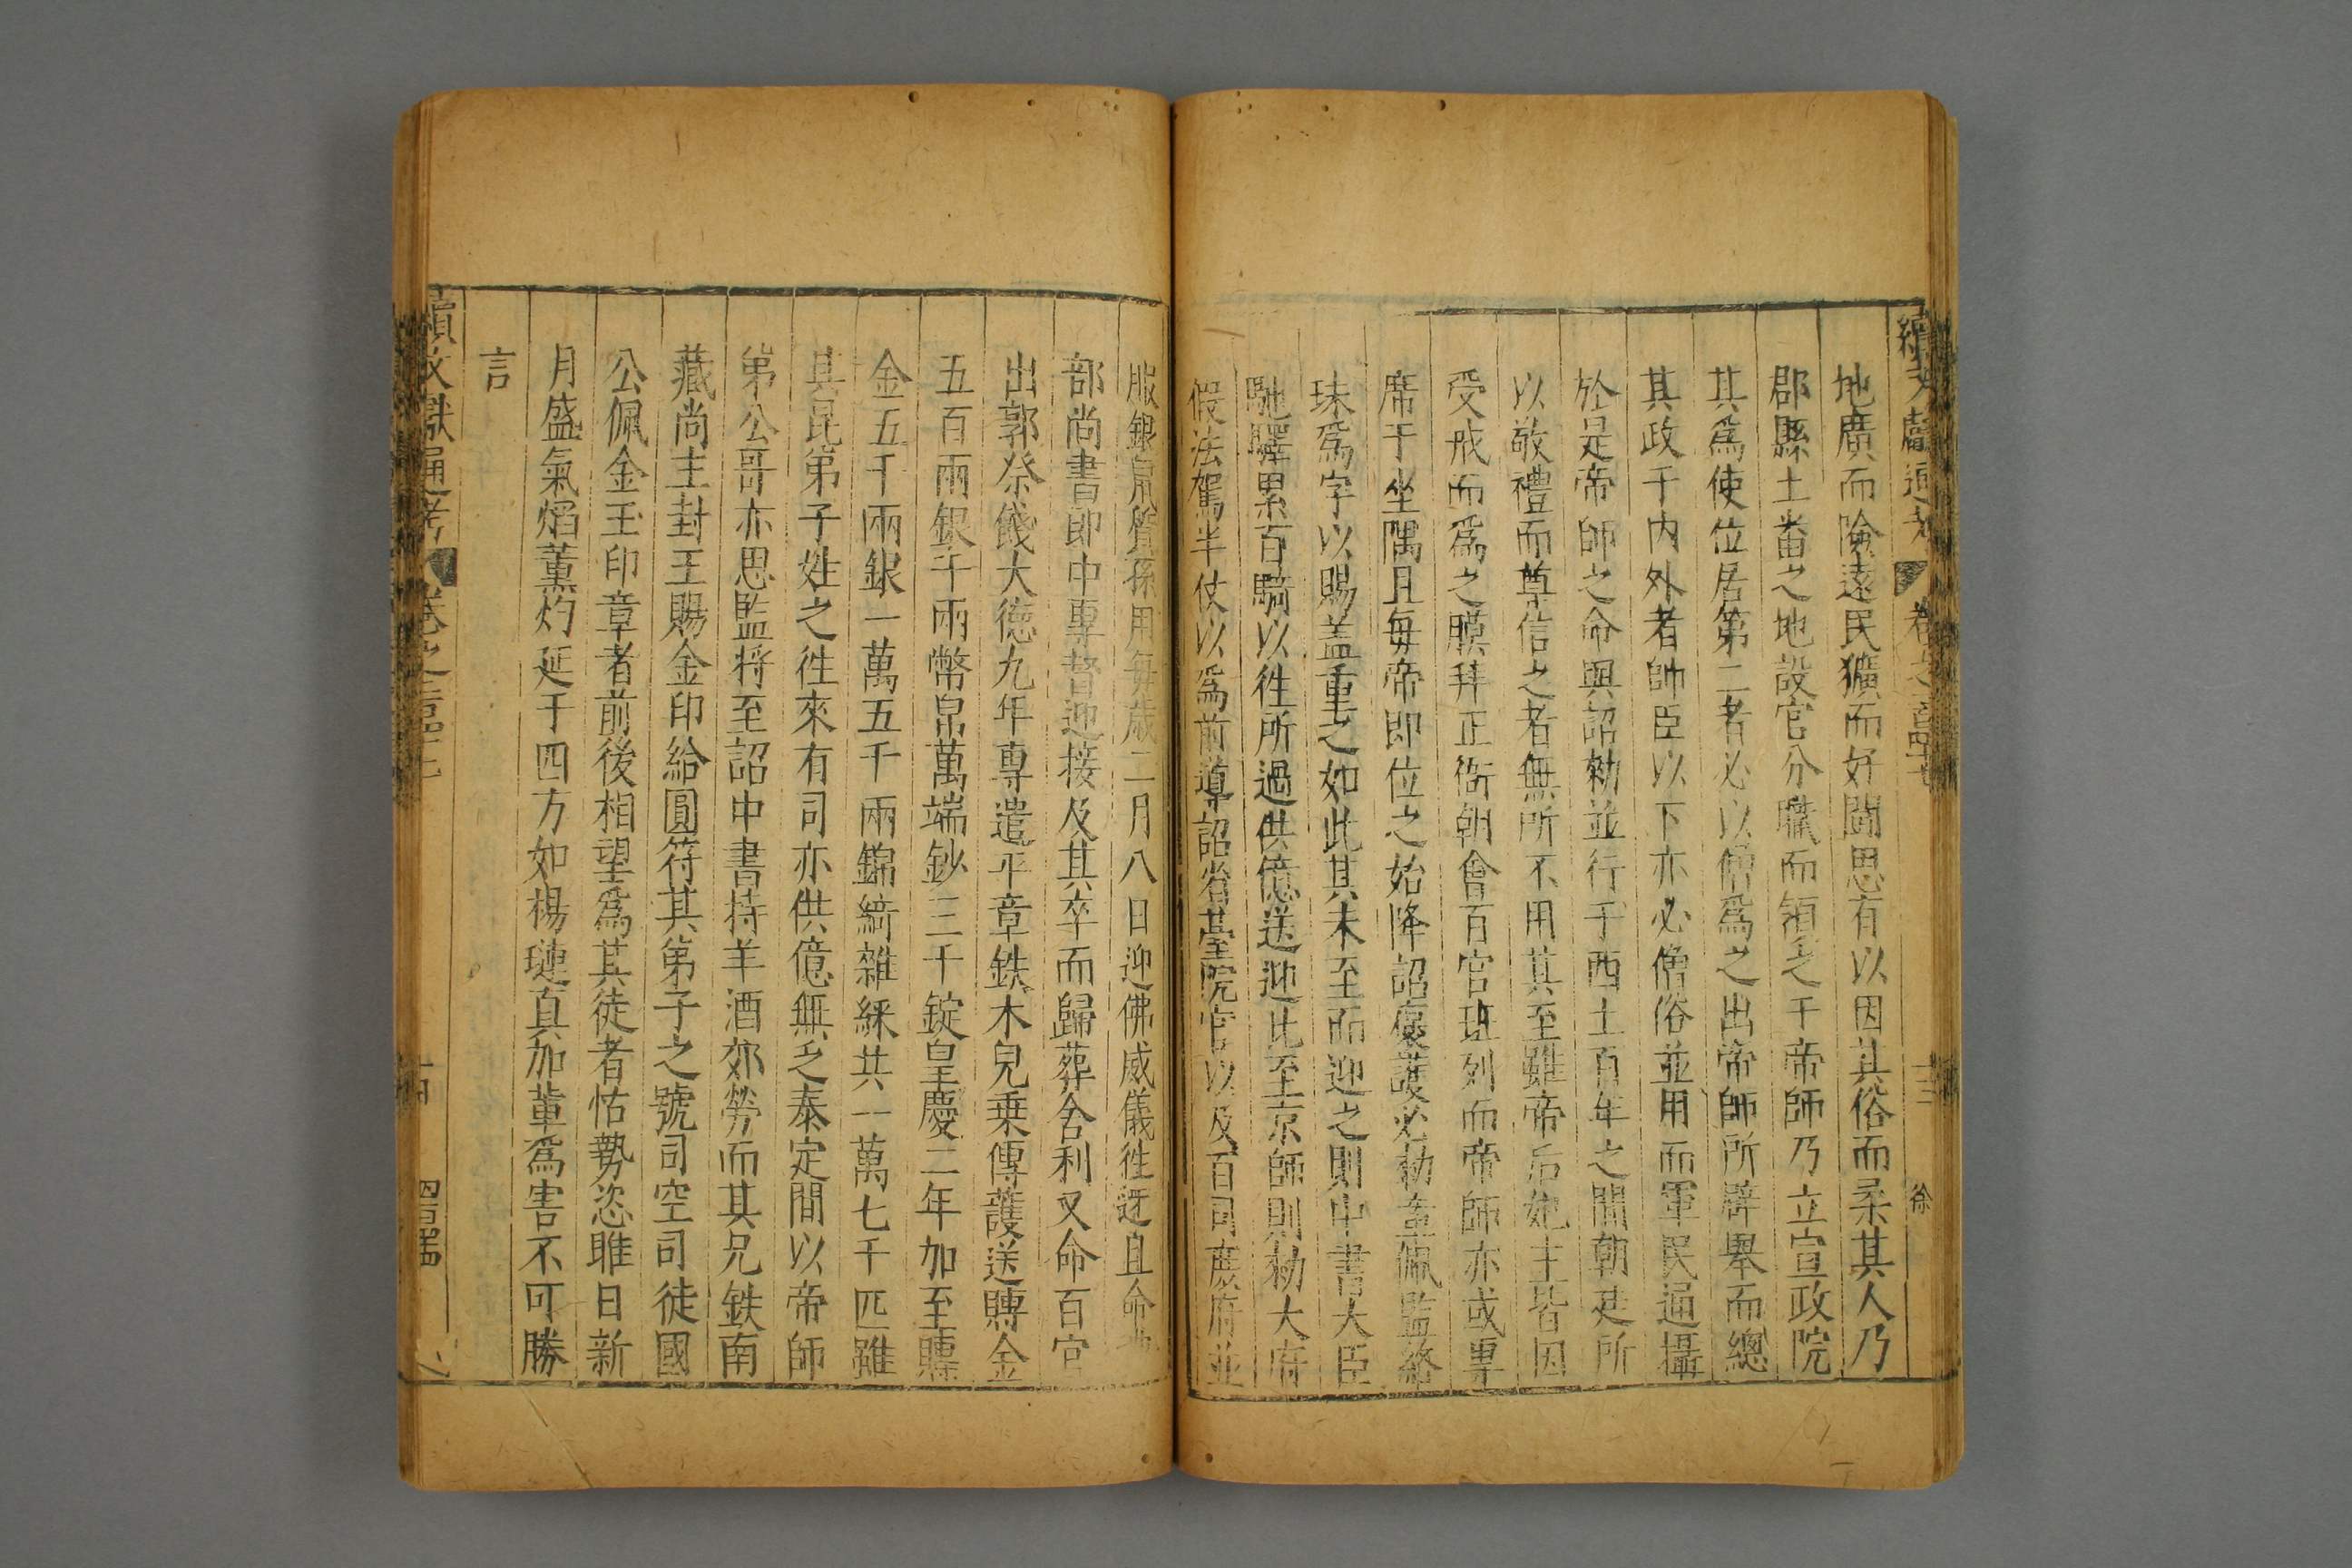 續文獻通考 卷之 十三 徐
地廣而險遠民獷而好鬭思有以因其俗而柔其人乃
郡縣土番之地設官分職而領之于帝師乃立宣政院
其爲使位居第二者必以僧爲之出帝師所辟舉而總
其政于内外者帥臣以下亦必僧俗並用而軍民通攝
於是帝師之命與詔勑並行于西土百年之間朝廷所
以敬禮而尊信之者無所不用其至雖帝后妃主皆因
受戒而爲之膜拜正衙朝會百官班列而帝師亦或專
席于坐隅且每帝即位之始降詔褒護必勑章佩監絡
珠爲字以賜盖重之如此其未至而迎之則中書大臣
馳驛累百騎以徃所過供億送迎比至京師則勑大府
假法駕半仗以爲前導詔省臺院官以及百司庶府並
服銀鼠質孫用每歲二月八日迎佛威儀徃迓且命
部尚書郎中專督迎接及其卒而歸葬舍利又命百官
出郭祭餞大德九年専遣平章鉄木兒乗傳護送賻金
五百兩銀千兩幣帛萬端鈔三千錠皇慶二年加至賻
金五千兩銀一萬五千兩錦綺雜綵共一萬七千匹雖
其昆弟子姓之徃來有司亦供億無乏泰定間以帝師
弟公哥亦思監将至詔中書持羊酒郊勞而其兄鉄南
藏尚主封王賜金印給圓符其弟子之號司空司徒國
公佩金玉印章者前後相望爲其徒者怙勢恣睢日新
月盛氣熖薰灼延于四方如楊璉真加軰爲害不可勝
言
續文獻通考 卷之 十四